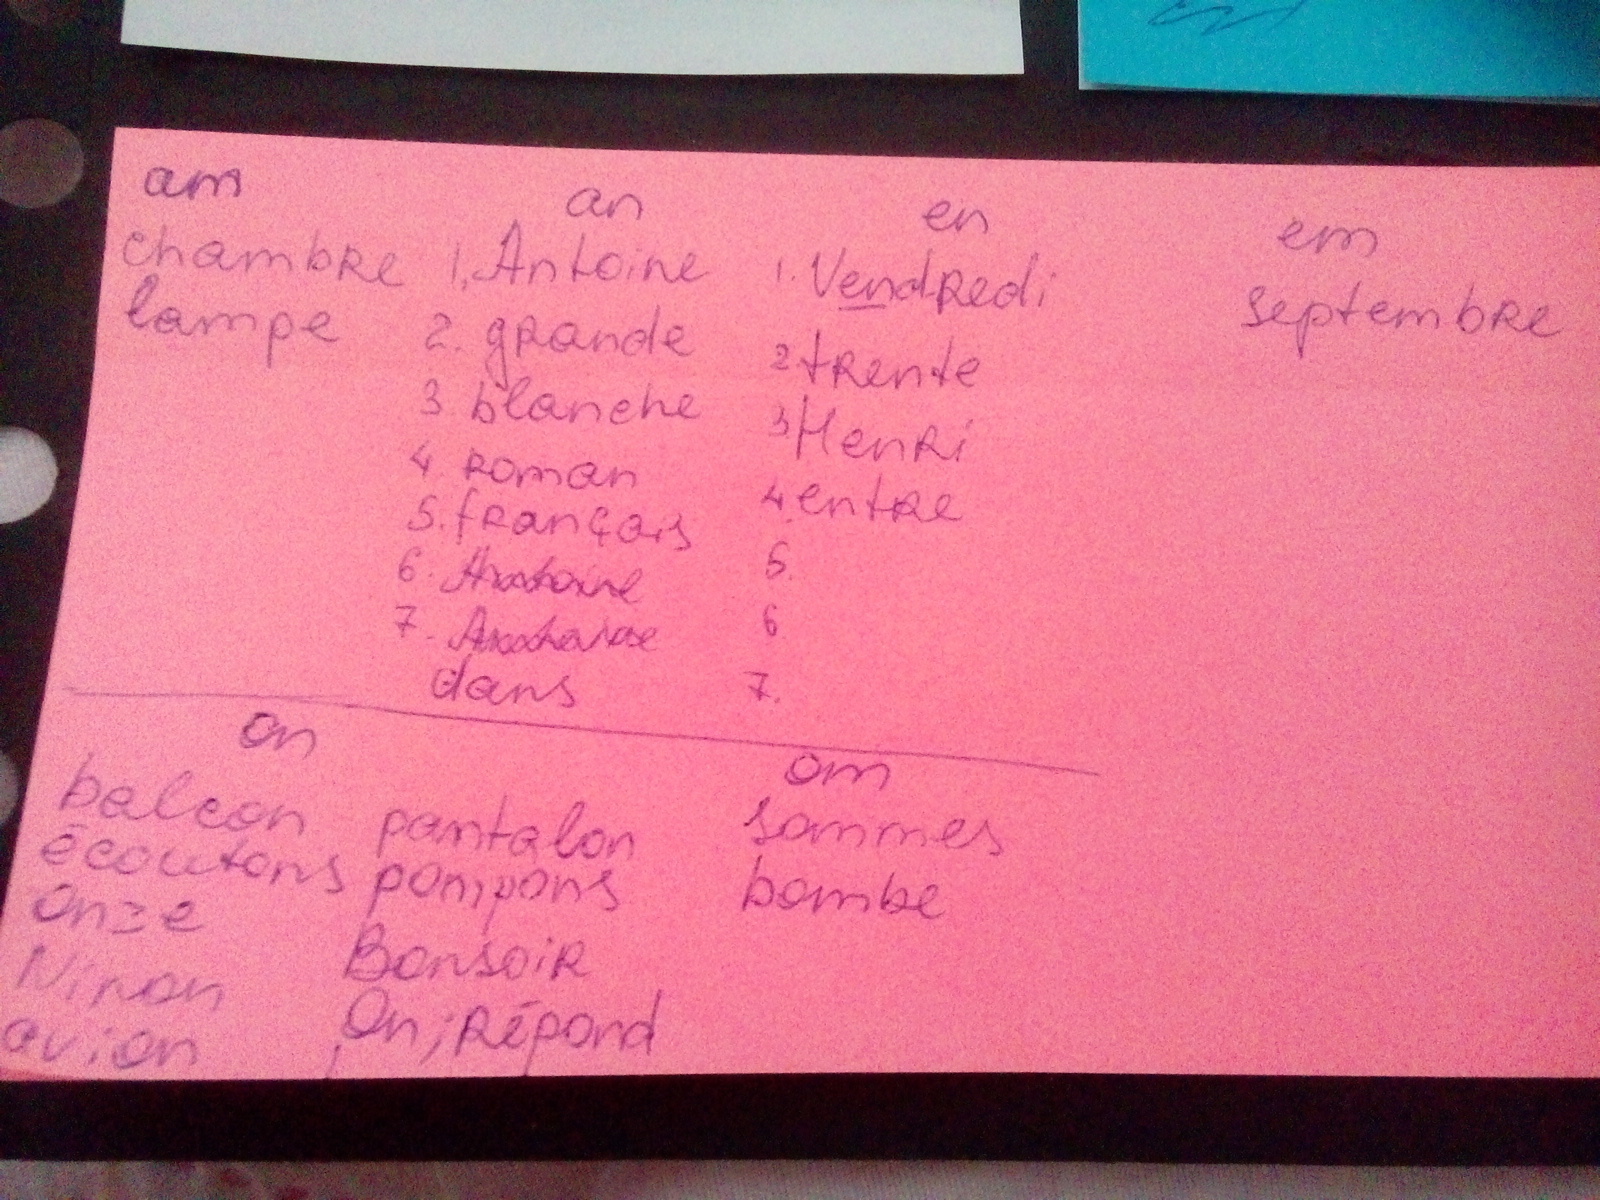 am an en em
chambre 1. Antoine 1. Vendredi septembre
lampe 2. grande 2 trente
3 blanche 3 Henri
4 roman 4 entre
5. français 5.
6. Antoine 6
7. 7.
dans
on om
balcon pantalon sommes
écoutons pompons bombe
onze Bonsoir
Ninon On; Répond
avion